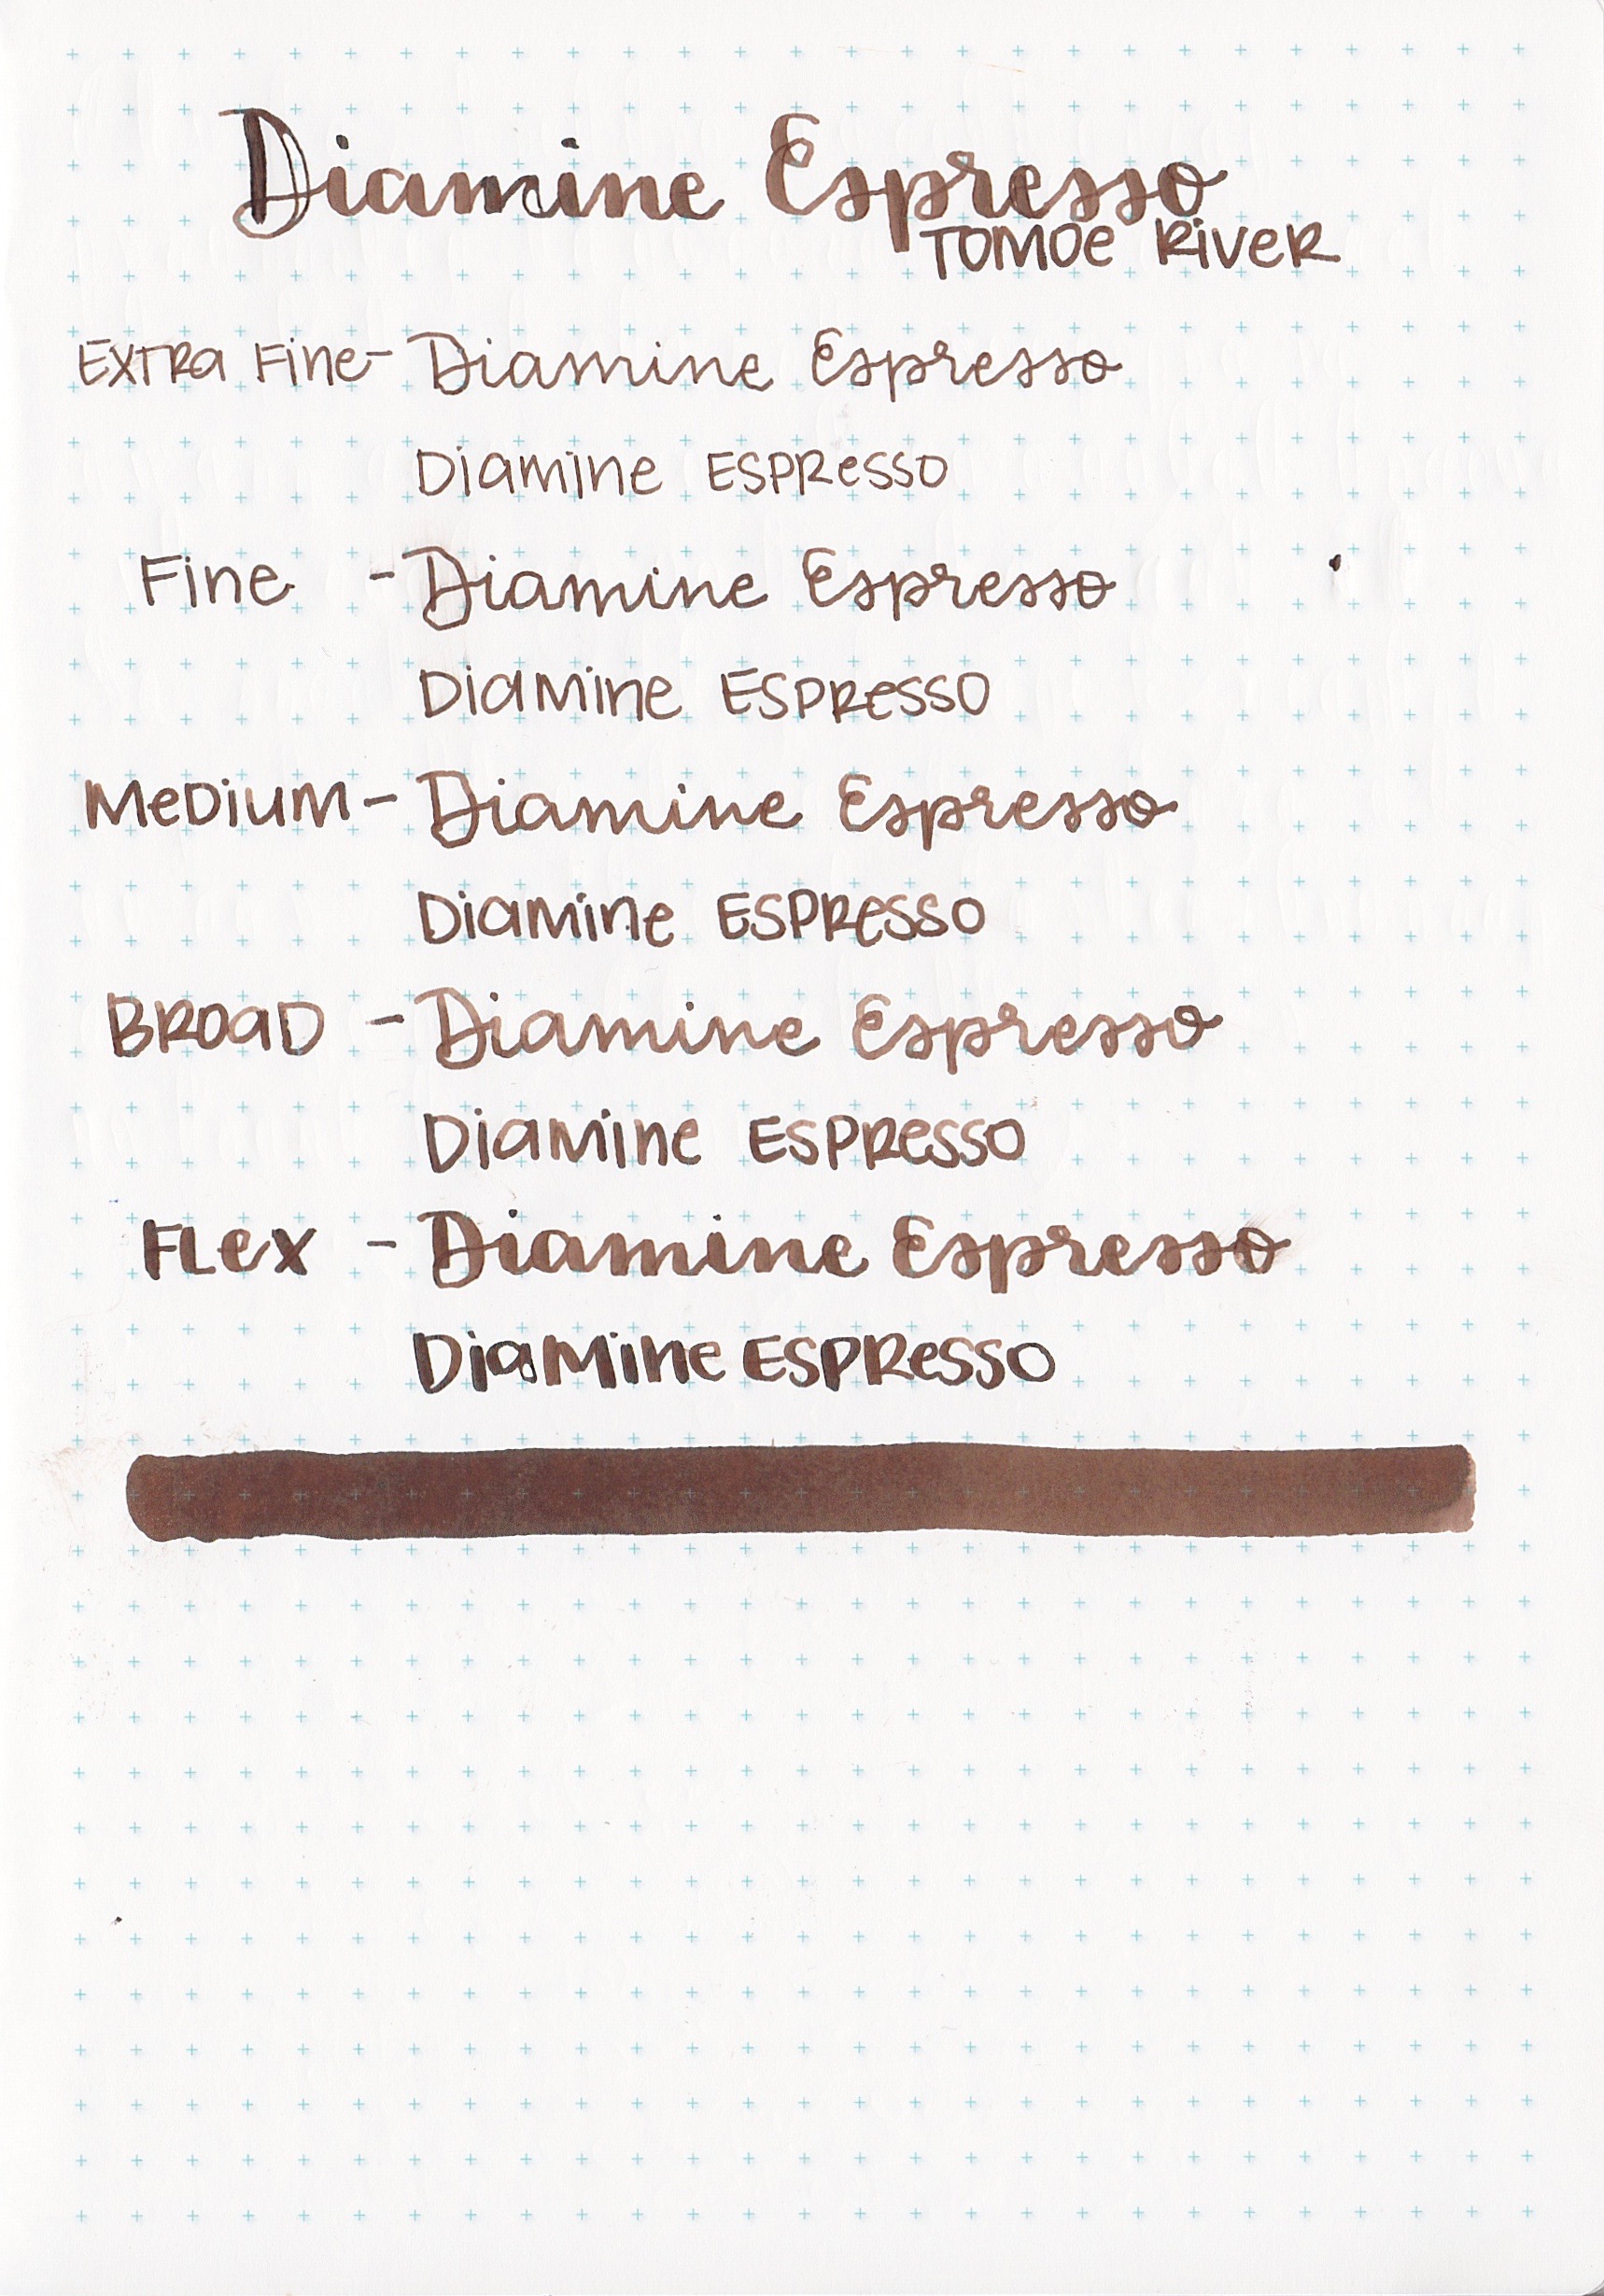 Diamine Espresso
TOMOe RiVeR
EXTRa Fine - Diamine Espresso
Diamine ESPReSSO
Fine - Diamine Espresso
DiaMine ESPReSSO
MeDiuM - Diamine Espresso
DiaMine ESPReSSO
BROaD - Diamine Espresso
DiaMine ESPReSSO
FLex - Diamine Espresso
DiaMine ESPReSSO